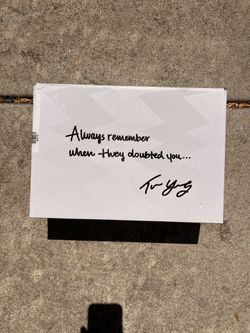 Always remember
when they doubted you...